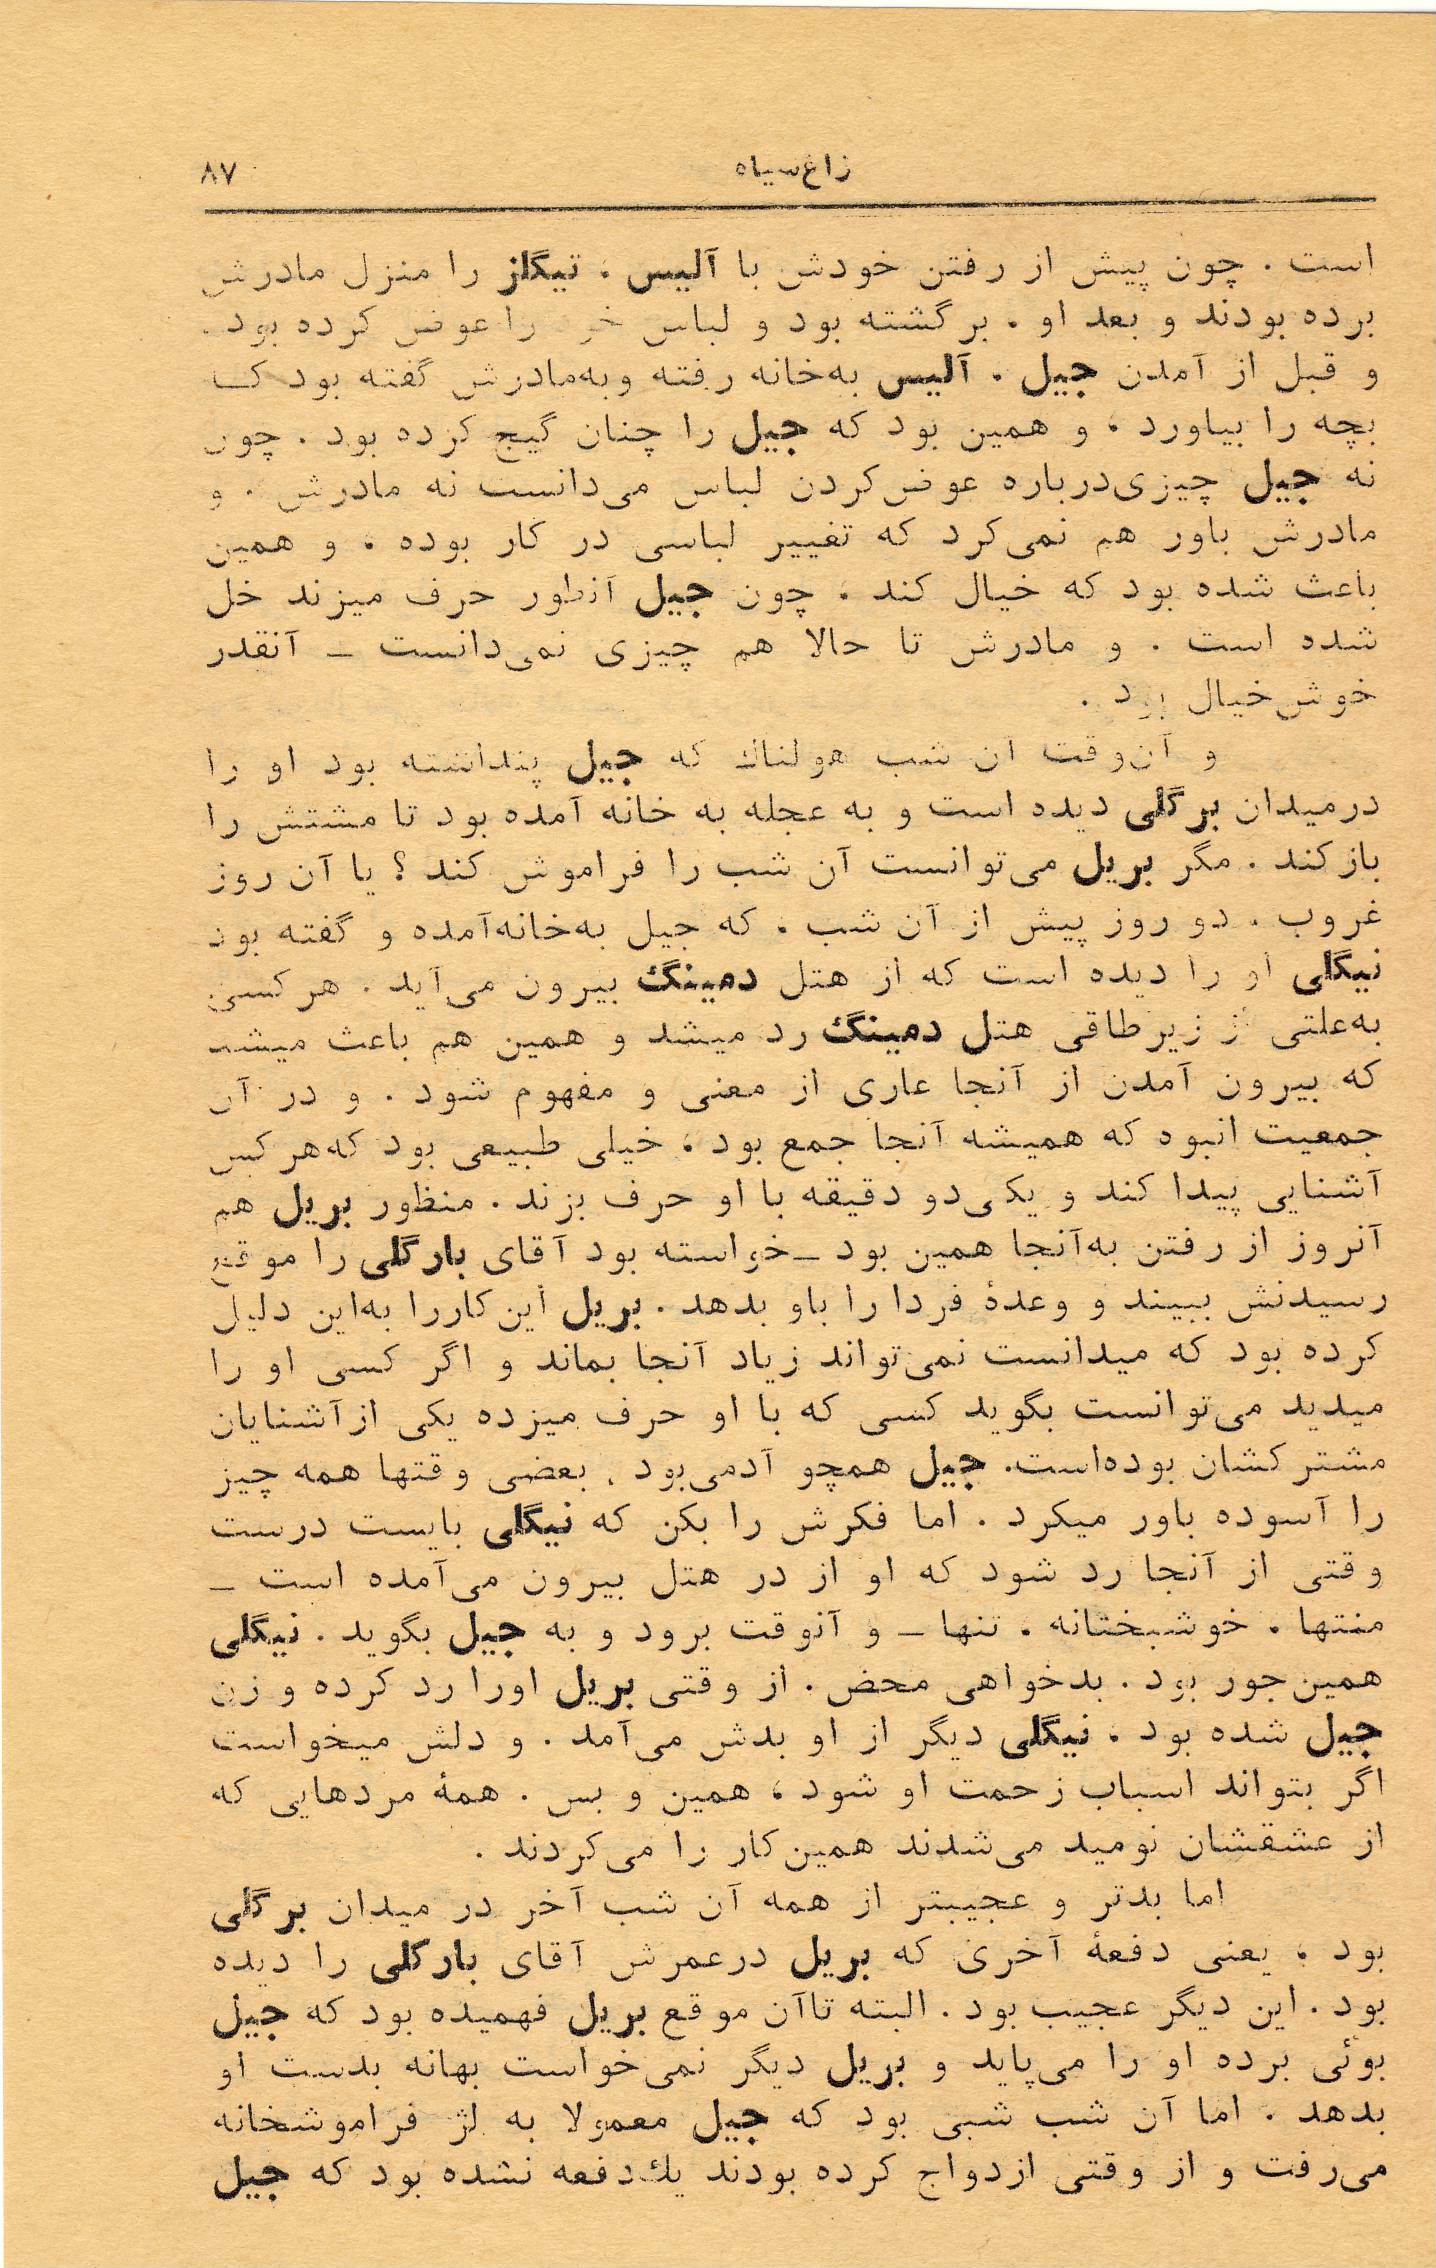 زاغ سیاه ۸۷
است . چون پیش از رفتن خودش با آلیس ، تیگلز را منزل مادرش
برده بودند و بعد او . برگشته بود و لباس را عوض کرده بود .
و قبل از آمدن جیل . آلیس به‌خانه رفته و به‌مادرش گفته بود که
بچه را بیاورد ، و همین بود که جیل را چنان گیج کرده بود . چون
نه جیل چیزی‌درباره عوض‌کردن لباس می‌دانست نه مادرش . و
مادرش باور هم نمی‌کرد که تغییر لباسی در کار بوده ، و همین
باعث شده بود که خیال کند ، چون جیل آنطور حرف میزند خل
شده است . و مادرش تا حالا هم چیزی نمی‌دانست ـ آنقدر
خوش‌خیال بود .
و آن‌وقت آن شب هولناك که جیل پنداشته بود او را
درمیدان برگلی دیده است و به عجله به خانه آمده بود تا مشتش را
باز کند . مگر بریل می‌توانست آن شب را فراموش کند ؟ یا آن روز
غروب . دو روز پیش از آن شب . که جیل به‌خانه‌آمده و گفته بود
نیگلی او را دیده است که از هتل دمینگ بیرون می‌آید . هرکسی
به‌علتی از زیرطاقی هتل دمینگ رد میشد و همین هم باعث میشد
که بیرون آمدن از آنجا عاری از معنی و مفهوم شود . و در آن
جمعیت انبوه که همیشه آنجا جمع بود ، خیلی طبیعی بود که‌هرکس
آشنایی پیدا کند و یکی‌دو دقیقه با او حرف بزند . منظور بریل هم
آنروز از رفتن به‌آنجا همین بود ـ خواسته بود آقای بارگلی را موقع
رسیدنش ببیند و وعدهٔ فردا را باو بدهد . بریل این‌کاررا به‌این دلیل
کرده بود که میدانست نمی‌تواند زیاد آنجا بماند و اگر کسی او را
میدید می‌توانست بگوید کسی که با او حرف میزده یکی ازآشنایان
مشترکشان بوده‌است. جیل همچو آدمی‌بود . بعضی وقتها همه چیز
را آسوده باور میکرد . اما فکرش را بکن که نیگلی بایست درست
وقتی از آنجا رد شود که او از در هتل بیرون می‌آمده است ـ
منتها . خوشبختانه . تنها ـ و آنوقت برود و به جیل بگوید . نیگلی
همین‌جور بود . بدخواهی محض . از وقتی بریل اورا رد کرده و زن
جیل شده بود ، نیگلی دیگر از او بدش می‌آمد . و دلش میخواست
اگر بتواند اسباب زحمت او شود ، همین و بس . همهٔ مردهایی که
از عشقشان نومید می‌شدند همین‌کار را می‌کردند .
اما بدتر و عجیبتر از همه آن شب آخر در میدان برگلی
بود ، یعنی دفعهٔ آخری که بریل درعمرش آقای بارکلی را دیده
بود . این دیگر عجیب بود . البته تاآن موقع بریل فهمیده بود که جیل
بوئی برده او را می‌پاید و بریل دیگر نمی‌خواست بهانه بدست او
بدهد . اما آن شب شبی بود که جیل معمولا به لژ فراموشخانه
می‌رفت و از وقتی ازدواج کرده بودند یك‌دفعه نشده بود که جیل